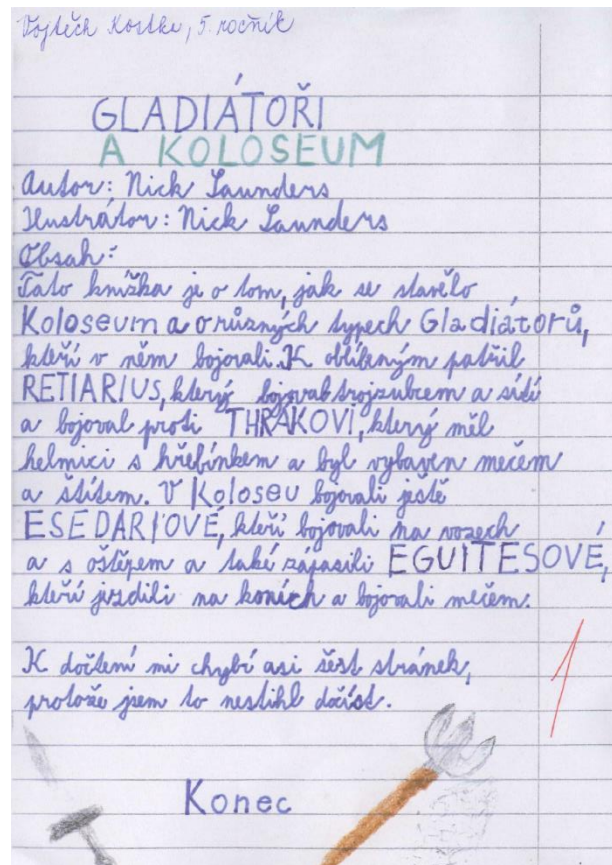 Vojtěch Kostka, 5. ročník
GLADIÁTOŘI
A KOLOSEUM
Autor: Nick Saunders
Ilustrátor: Nick Saunders
Obsah:
Tato knížka je o tom, jak se stavělo
Koloseum a o různých typech Gladiátorů,
kteří v něm bojovali. K oblíbeným patřil
RETIARIUS, který bojoval trojzubcem a sítí
a bojoval proti THRÁKOVI, který měl
helmici s hřebínkem a byl vybaven mečem
a štítem. V Koloseu bojovali ještě
ESEDARIOVÉ, kteří bojovali na vozech
a s oštěpem a také zápasili EGUITESOVÉ,
kteří jezdili na koních a bojovali mečem.
K dočtení mi chybí asi šest stránek,
protože jsem to nestihl dočíst.
1
Konec